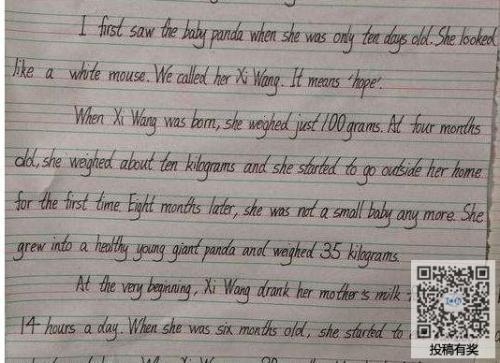 I first saw the baby panda when she was only ten days old. She looked
like a white mouse. We called her Xi Wang. It means 'hope'.
When Xi Wang was born, she weighed just 100 grams. At four months
old, she weighed about ten kilograms and she started to go outside her home
for the first time. Eight months later, she was not a small baby any more. She
grew into a healthy young giant panda and weighed 35 kilograms.
At the very beginning, Xi Wang drank her mother's milk
14 hours a day. When she was six months old, she started to
投稿有奖